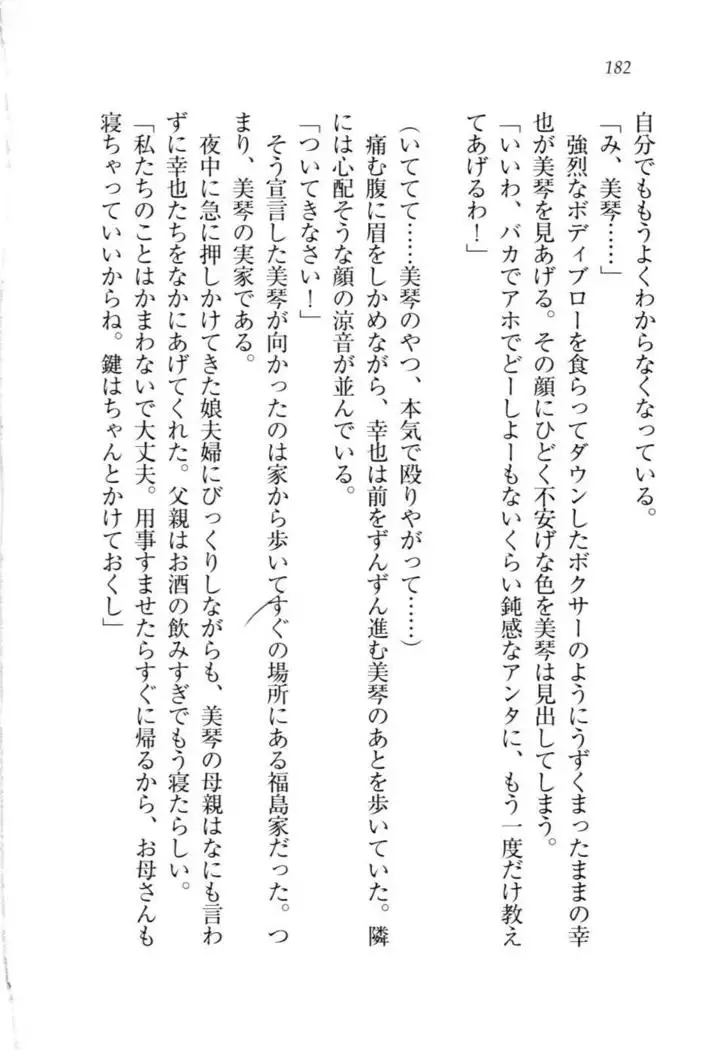 182
自分でももうよくわからなくなっている。
「み、美琴……」
強烈なボディブローを食らってダウンしたボクサーのようにうずくまったままの幸
也が美琴を見あげる。その顔にひどく不安げな色を美琴は見出してしまう。
「いいわ、バカでアホでどーしよーもないくらい鈍感なアンタに、もう一度だけ教え
てあげるわ！」
（いててて……美琴のやつ、本気で殴りやがって……）
痛む腹に眉をしかめながら、幸也は前をずんずん進む美琴のあとを歩いていた。隣
には心配そうな顔の涼音が並んでいる。
「ついてきなさい！」
そう宣言した美琴が向かったのは家から歩いてすぐの場所にある福島家だった。つ
まり、美琴の実家である。
夜中に急に押しかけてきた娘夫婦にびっくりしながらも、美琴の母親はなにも言わ
ずに幸也たちをなかにあげてくれた。父親はお酒の飲みすぎでもう寝たらしい。
「私たちのことはかまわないで大丈夫。用事すませたらすぐに帰るから、お母さんも
寝ちゃっていいからね。鍵はちゃんとかけておくし」